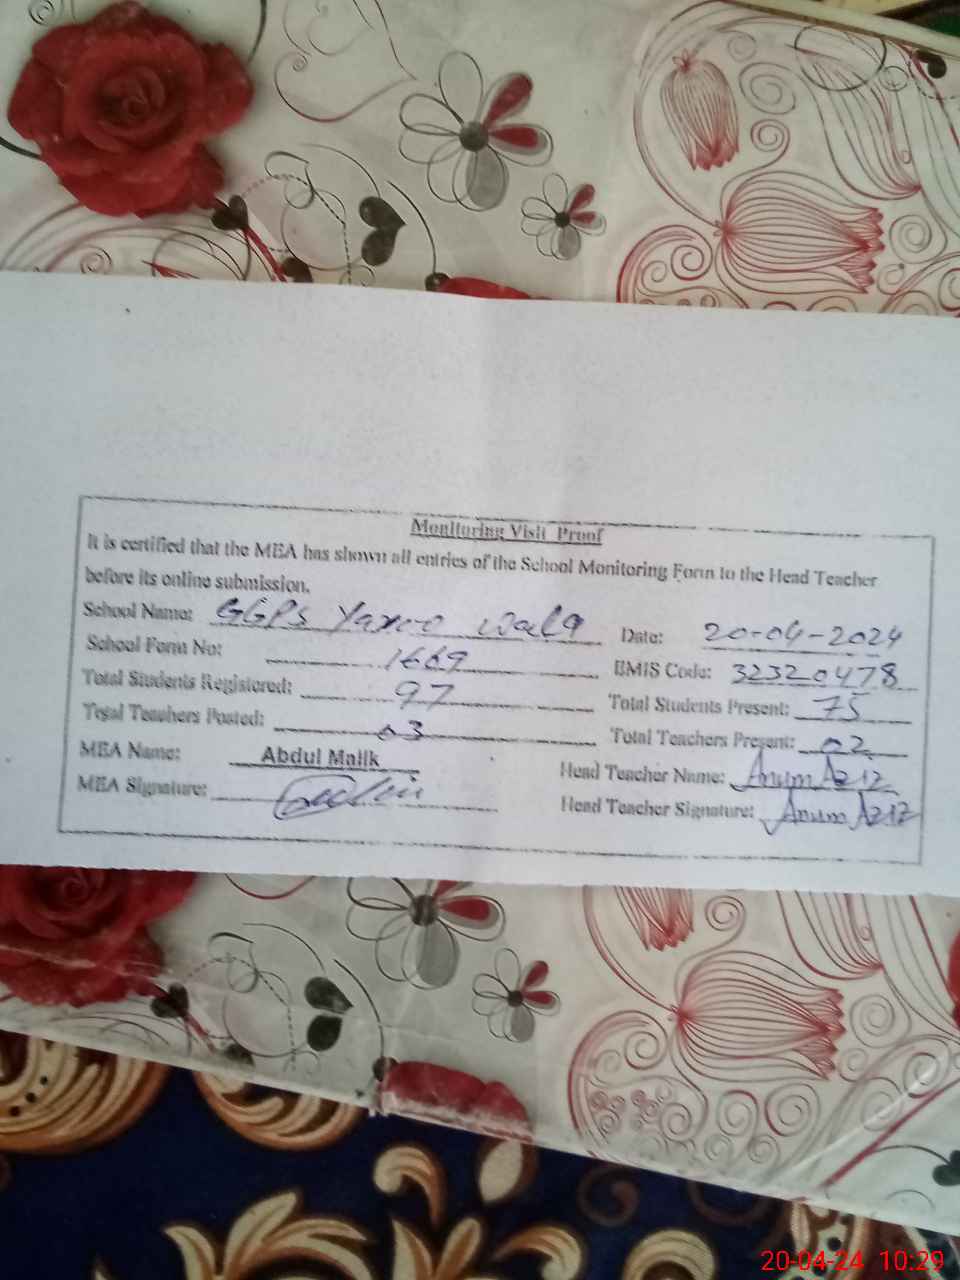 Monitoring Visit Proof
It is certified that the MEA has shown all entries of the School Monitoring Form to the Head Teacher
before its online submission.
School Name: GGPS Yaroo Wala Date: 20-04-2024
School Form No: 1669 EMIS Code: 32320478
Total Students Registered: 97 Total Students Present: 75
Total Teachers Posted: 03 Total Teachers Present: 02
MEA Name: Abdul Malik Head Teacher Name: Anum Aziz
MEA Signature: Head Teacher Signature: Anum Aziz
20-04-24 10:29